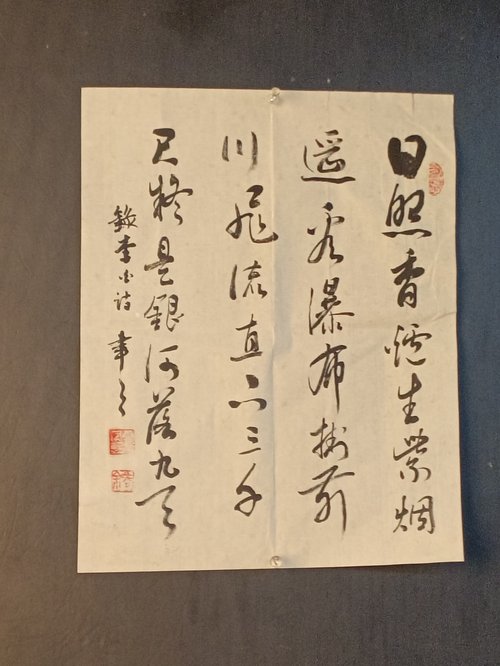 日照香炉生紫烟
遥看瀑布挂前
川飞流直下三千
尺疑是银河落九天
录李白诗